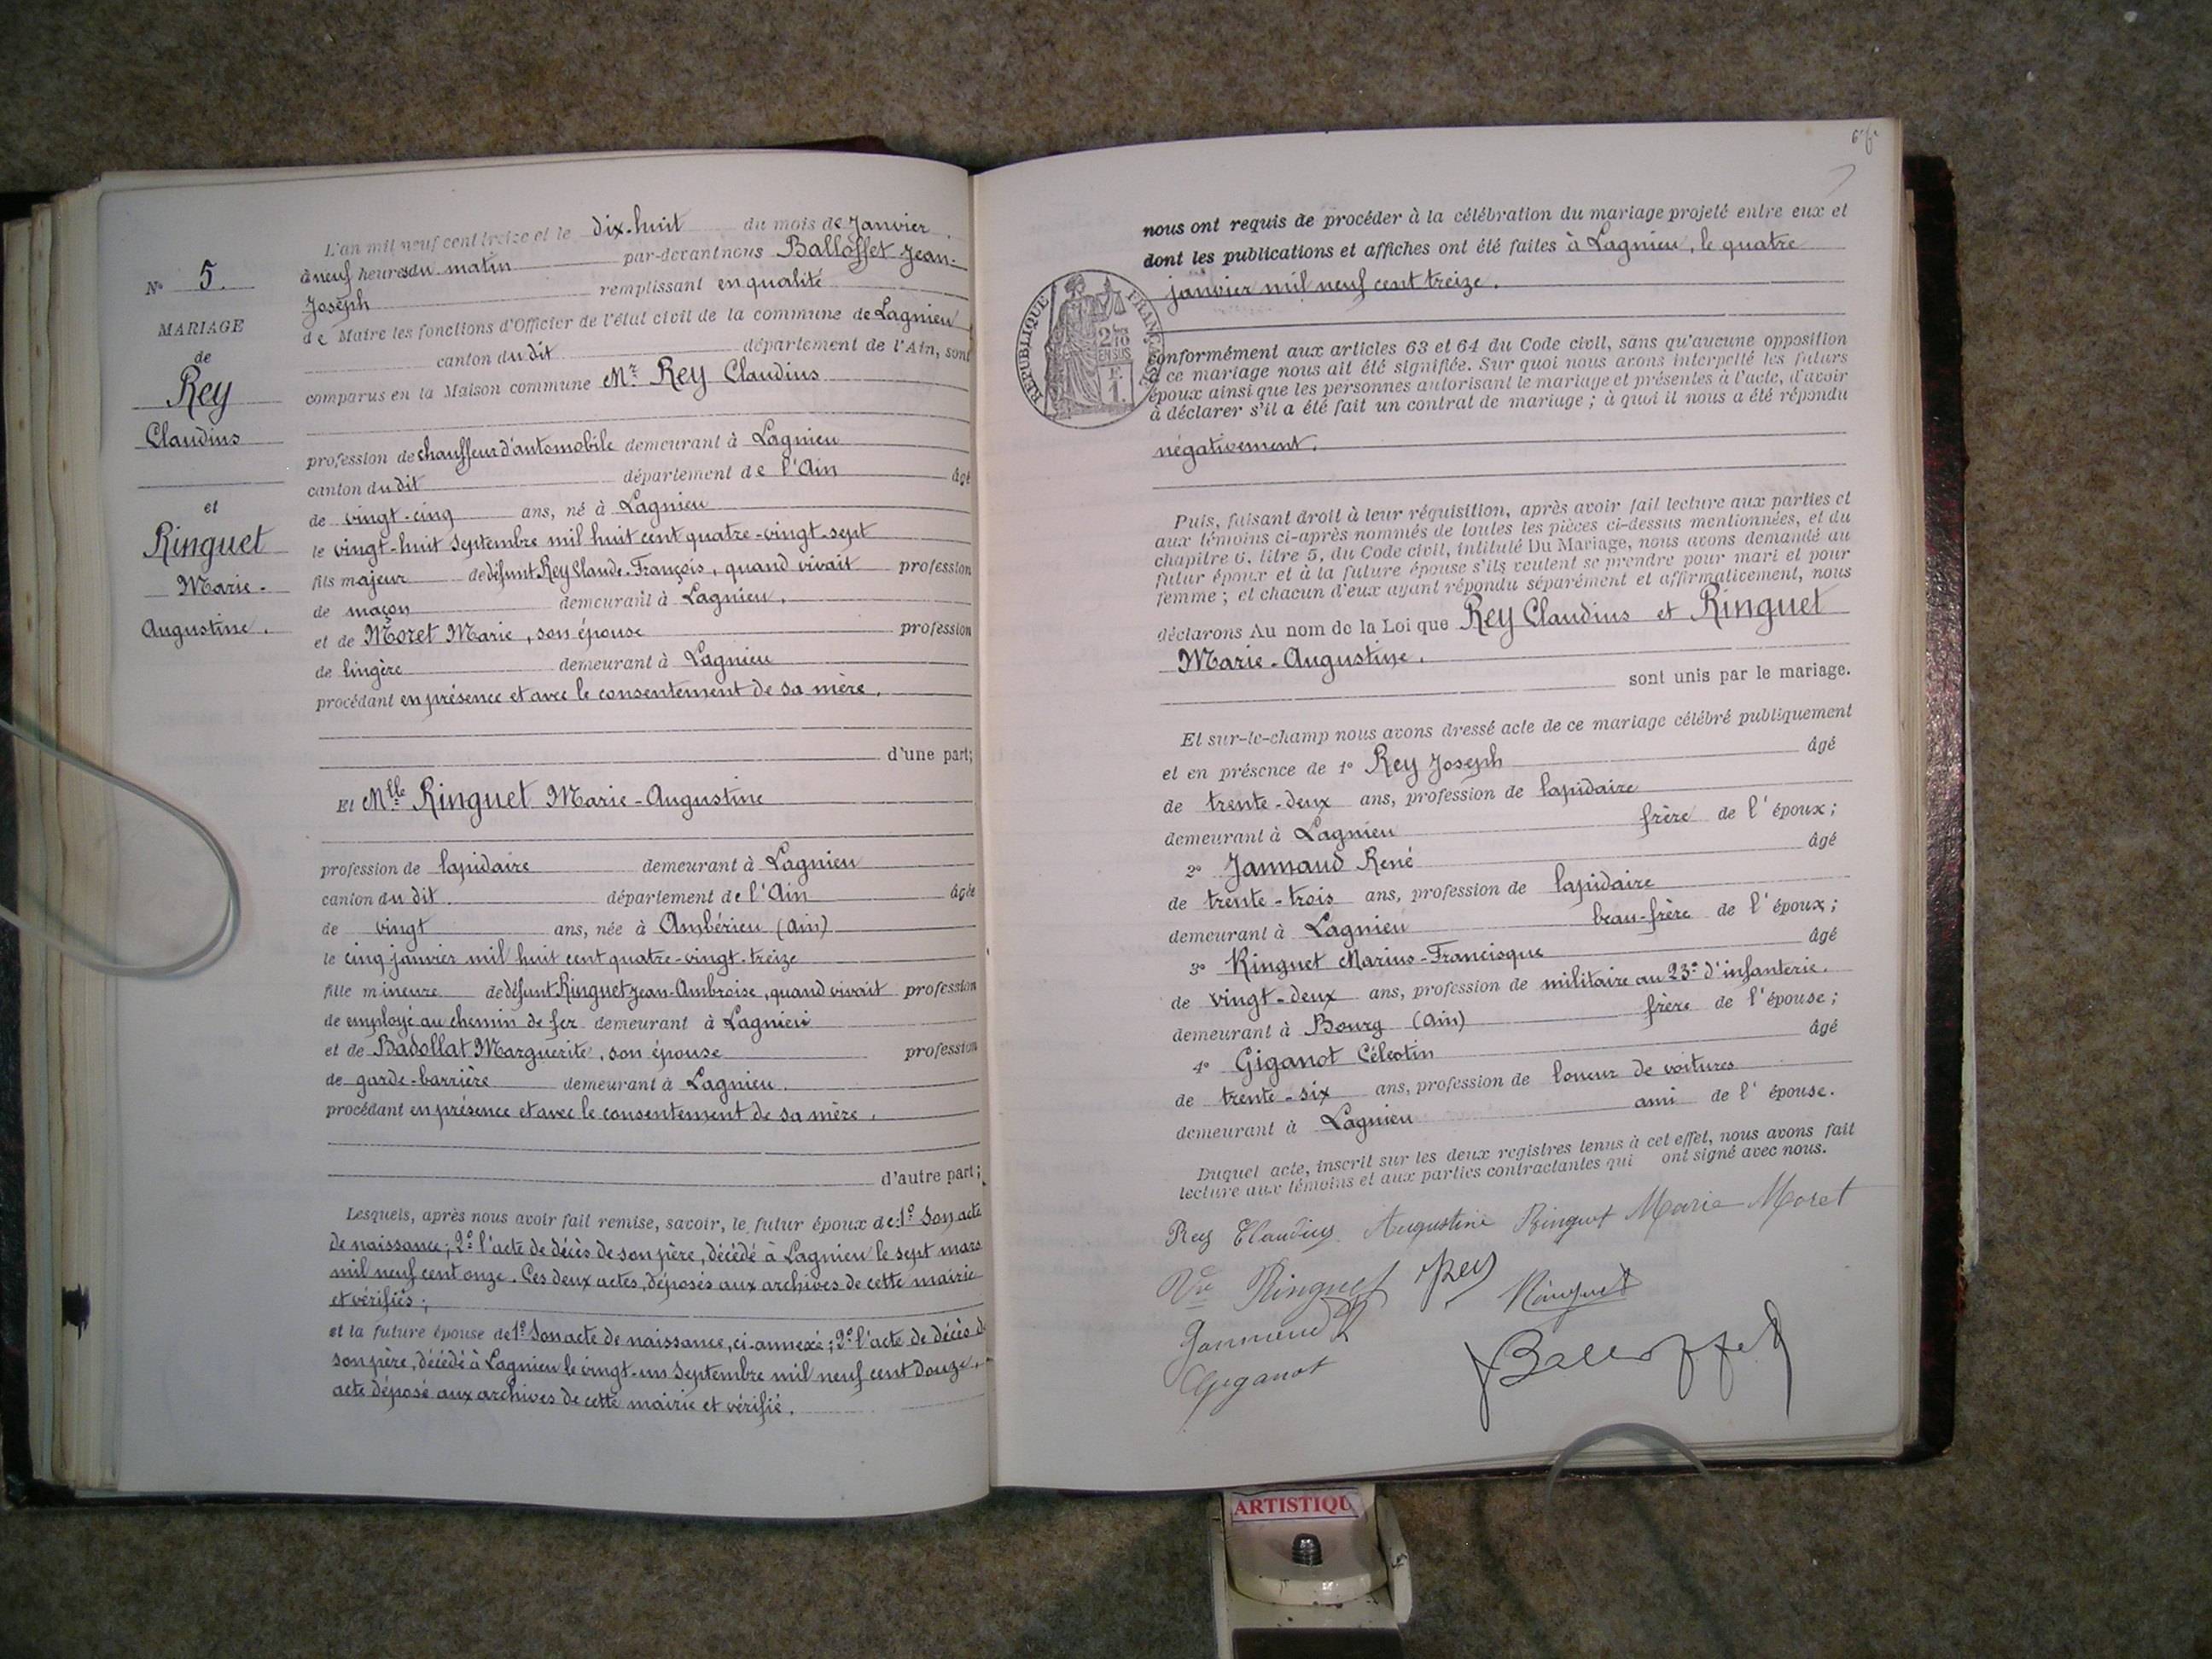 N° 5.
MARIAGE
de
Rey
Claudius
et
Ringuet
Marie-
Augustine.
L'an mil neuf cent treize et le dix-huit du mois de Janvier
à neuf heures du matin par-devant nous Balloffet Jean-
Joseph remplissant en qualité
de Maire les fonctions d'Officier de l'état civil de la commune de Lagnieu
canton du dit département de l'Ain, sont
comparus en la Maison commune Mr Rey Claudius
profession de chauffeur d'automobile demeurant à Lagnieu
canton du dit département de l'Ain âgé
de vingt-cinq ans, né à Lagnieu
le vingt-huit Septembre mil huit cent quatre-vingt-sept
fils majeur de défunt Rey Claude-François, quand vivait profession
de maçon demeurant à Lagnieu.
et de Moret Marie, son épouse profession
de lingère demeurant à Lagnieu
procédant en présence et avec le consentement de sa mère.
d'une part;
Et Mlle Ringuet Marie-Augustine
profession de lapidaire demeurant à Lagnieu
canton du dit. département de l'Ain âgée
de vingt ans, née à Ambérieu (Ain)
le cinq janvier mil huit cent quatre-vingt-treize
fille mineure de défunt Ringuet Jean-Ambroise, quand vivait profession
de employé au chemin de fer demeurant à Lagnieu
et de Badollat Marguerite, son épouse profession
de garde-barrière demeurant à Lagnieu.
procédant en présence et avec le consentement de sa mère.
d'autre part;
Lesquels, après nous avoir fait remise, savoir, le futur époux de: 1° Son acte
de naissance; 2° l'acte de décès de son père, décédé à Lagnieu le sept mars
mil neuf cent onze. Ces deux actes, déposés aux archives de cette mairie
et vérifiés;
et la future épouse de 1° Son acte de naissance, ci-annexé; 2° l'acte de décès de
son père, décédé à Lagnieu le vingt-un Septembre mil neuf cent douze,
acte déposé aux archives de cette mairie et vérifié.
nous ont requis de procéder à la célébration du mariage projeté entre eux et
dont les publications et affiches ont été faites à Lagnieu, le quatre
janvier mil neuf cent treize.
RÉPUBLIQUE FRANÇAISE
2/10
EN SUS
F.
1.
conformément aux articles 63 et 64 du Code civil, sans qu'aucune opposition
à ce mariage nous ait été signifiée. Sur quoi nous avons interpellé les futurs
époux ainsi que les personnes autorisant le mariage et présentes à l'acte, d'avoir
à déclarer s'il a été fait un contrat de mariage; à quoi il nous a été répondu
négativement.
Puis, faisant droit à leur réquisition, après avoir fait lecture aux parties et
aux témoins ci-après nommés de toutes les pièces ci-dessus mentionnées, et du
chapitre 6, titre 5, du Code civil, intitulé Du Mariage, nous avons demandé au
futur époux et à la future épouse s'ils veulent se prendre pour mari et pour
femme; et chacun d'eux ayant répondu séparément et affirmativement, nous
déclarons Au nom de la Loi que Rey Claudius et Ringuet
Marie-Augustine.
sont unis par le mariage.
Et sur-le-champ nous avons dressé acte de ce mariage célébré publiquement
et en présence de 1° Rey Joseph âgé
de trente-deux ans, profession de lapidaire
demeurant à Lagnieu frère de l'époux;
2° Jannaud René âgé
de trente-trois ans, profession de lapidaire
demeurant à Lagnieu beau-frère de l'époux;
3° Ringuet Marius-Francisque âgé
de vingt-deux ans, profession de militaire au 23e d'infanterie.
demeurant à Bourg (Ain) frère de l'épouse;
4° Giganot Célestin âgé
de trente-six ans, profession de loueur de voitures
demeurant à Lagnieu ami de l'épouse.
Duquel acte, inscrit sur les deux registres tenus à cet effet, nous avons fait
lecture aux témoins et aux parties contractantes qui ont signé avec nous.
Rey Claudius Augustine Ringuet Marie Moret
Vve Ringuet Rey Ringuet
Jannaud R
Giganot
Balloffet
ARTISTIQU